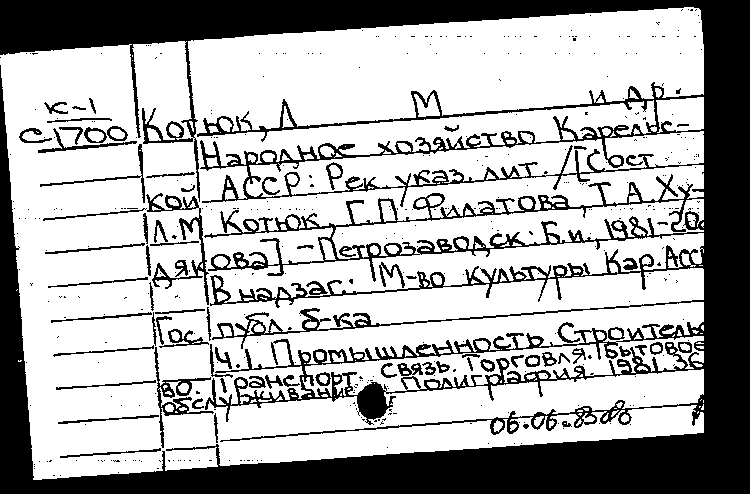 К-1
С-1700
Котюк, Л М и др.
Народное хозяйство Карельс-
кой АССР: Рек. указ. лит. /[Сост.
Л.М. Котюк, Г.П. Филатова, Т.А. Ху-
дякова]. - Петрозаводск: Б.и., 1981-20с
В надзаг.: М-во культуры Кар. АССР
Гос. публ. б-ка.
Ч.1. Промышленность. Строительс
во. Транспорт. Связь. Торговля. Бытовое
обслуживание. Полиграфия. 1981. 36
06.06.83